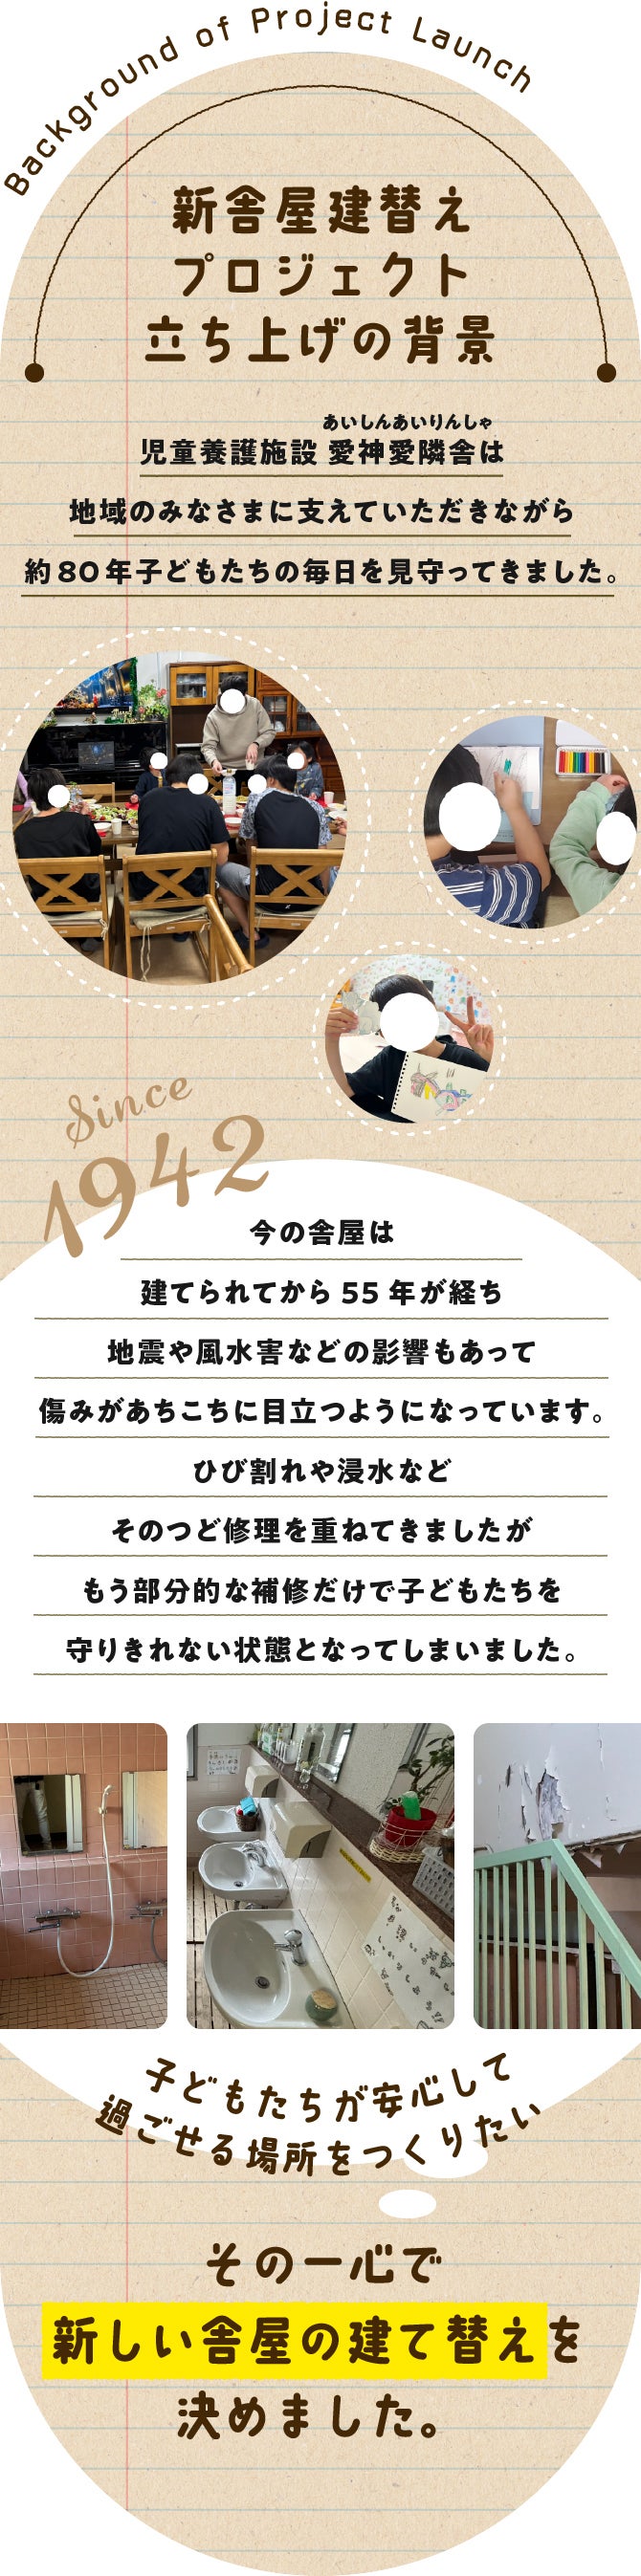 Background of Project Launch
新舎屋建替え
プロジェクト
立ち上げの背景
あいしんあいりんしゃ
児童養護施設 愛神愛隣舎は
地域のみなさまに支えていただきながら
約80年子どもたちの毎日を見守ってきました。
Since
1942
今の舎屋は
建てられてから 55 年が経ち
地震や風水害などの影響もあって
傷みがあちこちに目立つようになっています。
ひび割れや浸水など
そのつど修理を重ねてきましたが
もう部分的な補修だけで子どもたちを
守りきれない状態となってしまいました。
子どもたちが安心して
過ごせる場所をつくりたい
その一心で
新しい舎屋の建て替えを
決めました。